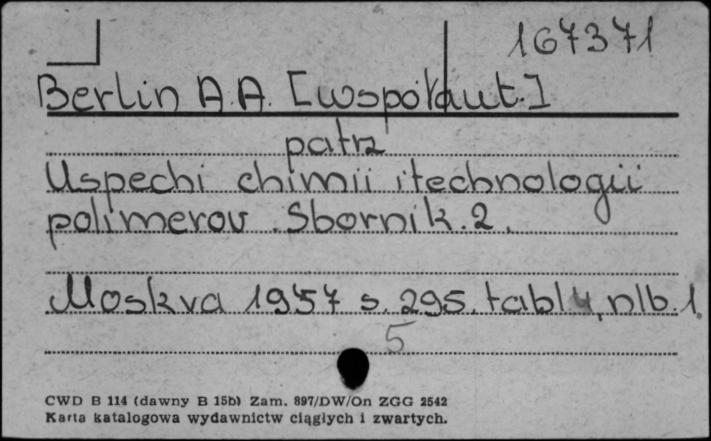 167371
Berlin A.A. [współaut.]
patrz
Uspechi chimii i technologii
polimerov. Sbornik. 2.
Moskva 1957 s. 295, tabl. 4, nlb. 1.
5
CWD B 114 (dawny B 15b) Zam. 897/DW/On ZGG 2542
Karta katalogowa wydawnictw ciągłych i zwartych.